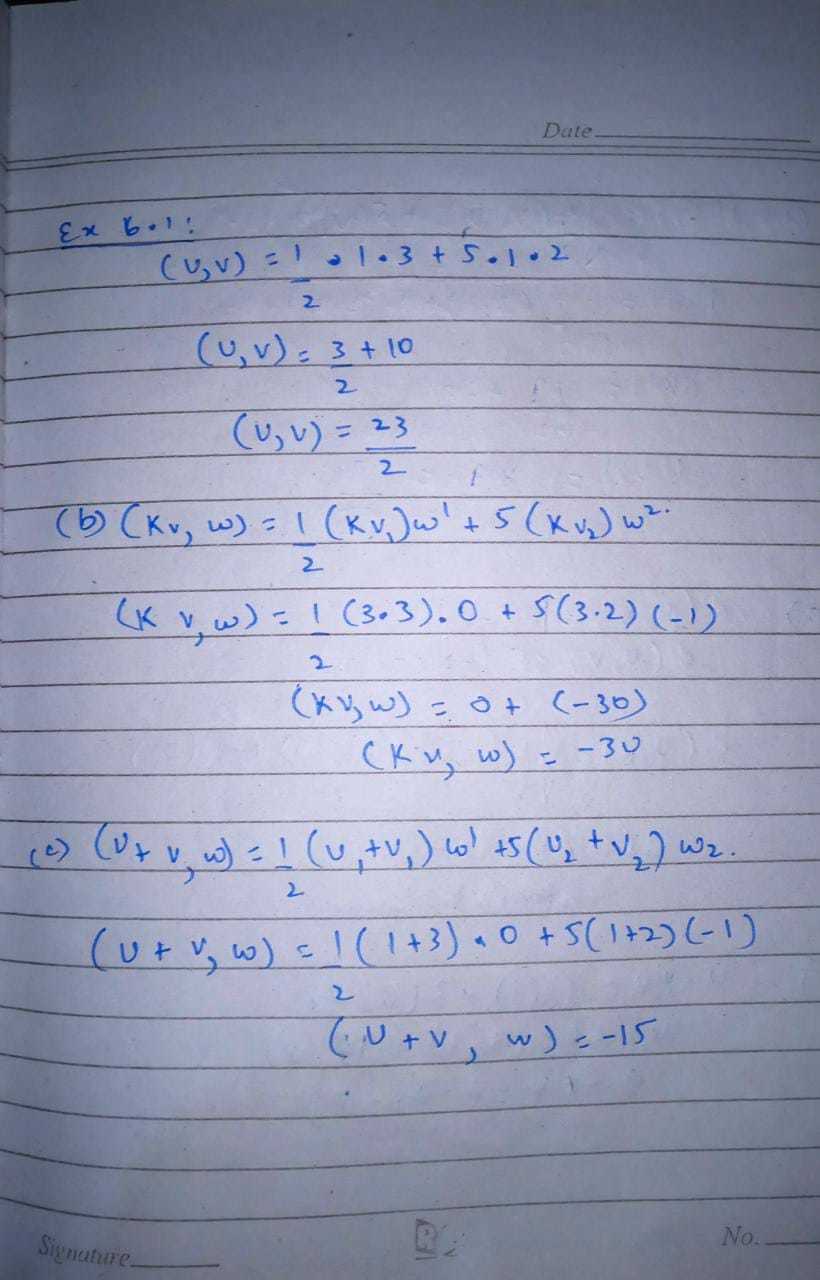 Date
Ex 6.1:
(U,V) = 1/2 • 1•3 + 5•1•2
(U,V) = 3/2 + 10
(U,V) = 23/2
(b) (Kv, w) = 1/2 (Kv₁)w' + 5 (Kv₂) w².
(K v, w) = 1/2 (3•3).0 + 5(3.2) (-1)
(Kv, w) = 0 + (-30)
(Kv, w) = -30
(c) (U+ v, w) = 1/2 (U₁+V₁) w' +5(U₂ + V₂) w₂.
(U + v, w) = 1/2 (1+3) • 0 + 5(1+2) (-1)
(U + V, w) = -15
Signature
No.